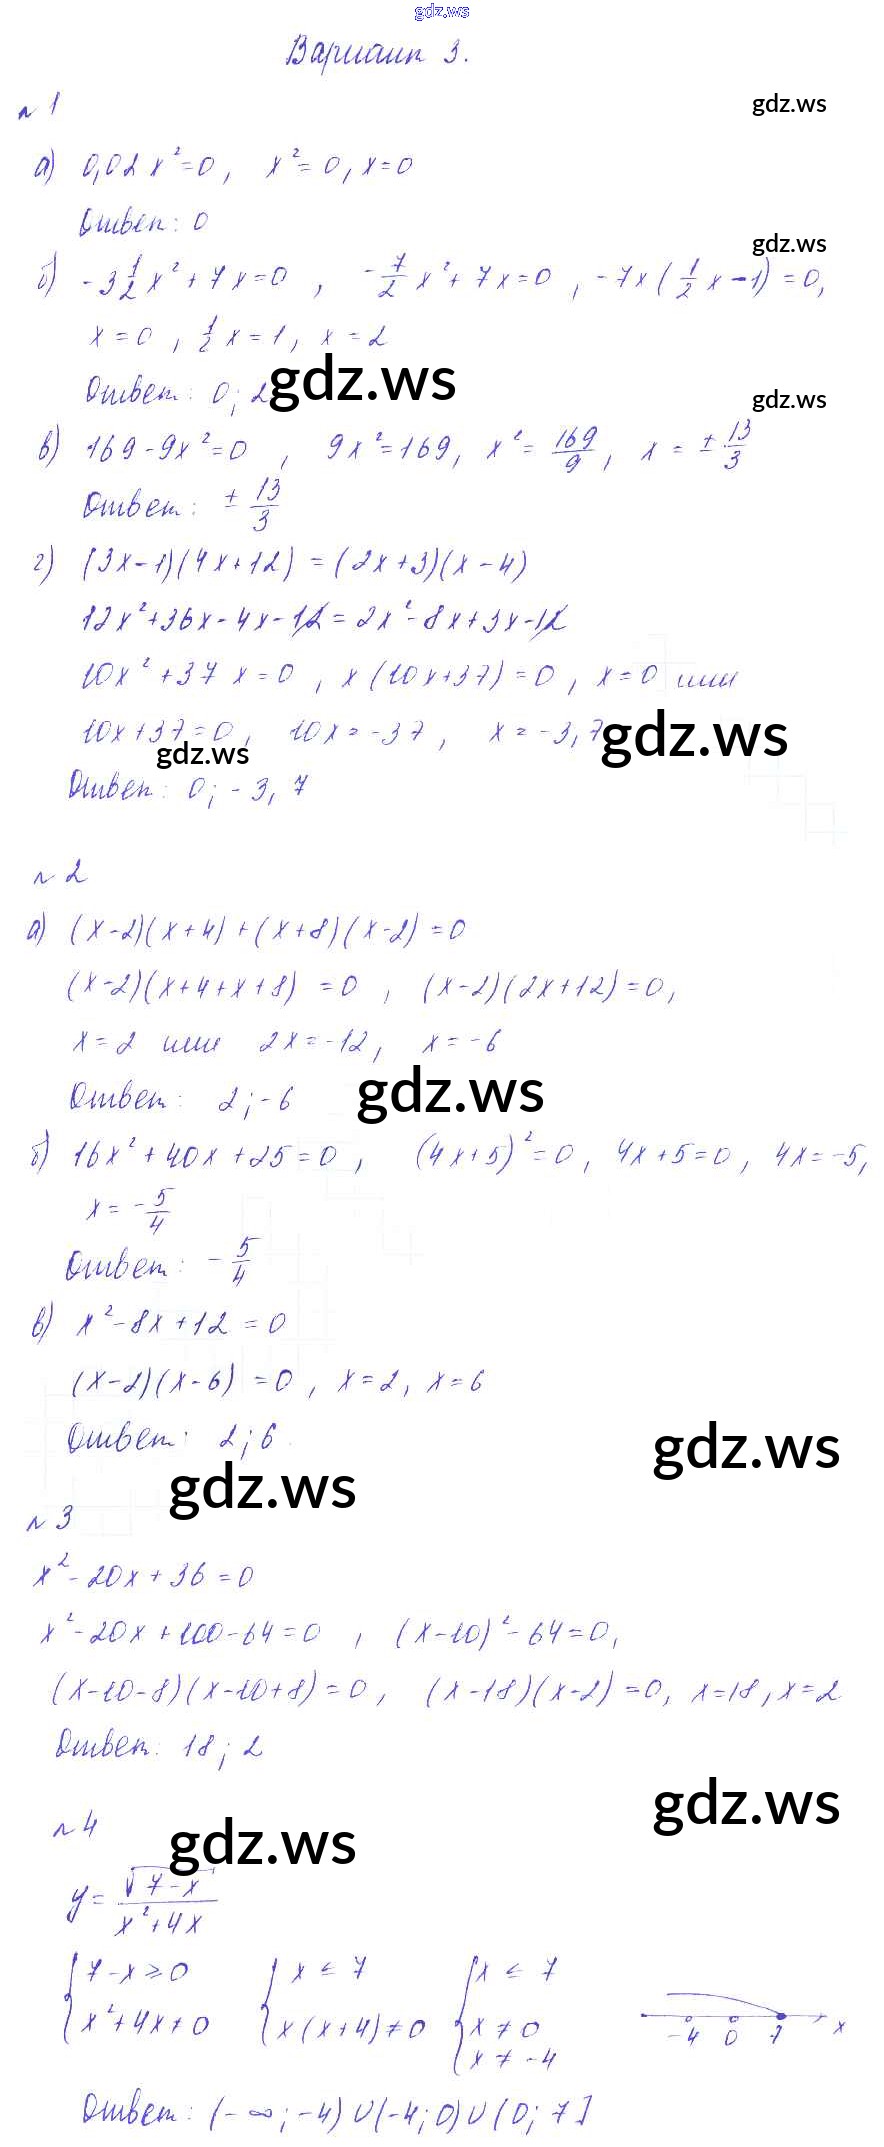 gdz.ws
Вариант 3.
№ 1
gdz.ws
а) 0,02x²=0, x²=0, x=0
Ответ: 0
gdz.ws
б) -3 1/2 x² + 7x=0, -7/2 x² + 7x=0, -7x(1/2 x-1)=0,
x=0, 1/2 x=1, x=2
Ответ: 0; 2
gdz.ws
gdz.ws
в) 169-9x²=0, 9x²=169, x²=169/9, x=±13/3
Ответ: ±13/3
г) (3x-1)(4x+12)=(2x+3)(x-4)
12x²+36x-4x-12=2x²-8x+3x-12
10x²+37x=0, x(10x+37)=0, x=0 или
10x+37=0, 10x=-37, x=-3,7
gdz.ws
gdz.ws
Ответ: 0; -3,7
№ 2
а) (x-2)(x+4)+(x+8)(x-2)=0
(x-2)(x+4+x+8)=0, (x-2)(2x+12)=0,
x=2 или 2x=-12, x=-6
Ответ: 2; -6
gdz.ws
б) 16x²+40x+25=0, (4x+5)²=0, 4x+5=0, 4x=-5,
x=-5/4
Ответ: -5/4
в) x²-8x+12=0
(x-2)(x-6)=0, x=2, x=6
Ответ: 2; 6
gdz.ws
gdz.ws
№ 3
x²-20x+36=0
x²-20x+100-64=0, (x-10)²-64=0,
(x-10-8)(x-10+8)=0, (x-18)(x-2)=0, x=18, x=2
Ответ: 18; 2
gdz.ws
№ 4
gdz.ws
y=√(7-x)/(x²+4x)
{7-x≥0 {x≤7 {x≤7
x²+4x≠0 x(x+4)≠0 x≠0
x≠-4
-4 0 7 x
Ответ: (-∞;-4)∪(-4;0)∪(0;7]